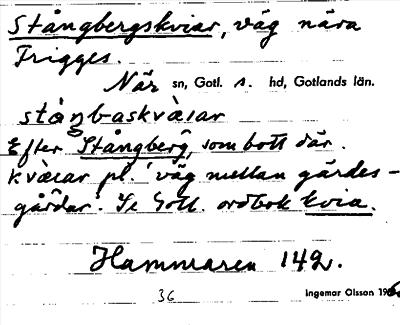 Stångbergskviar, väg nära
Frigges.
När sn, Gotl. s. hd, Gotlands län.
Efter Stångberg, som bott där.
kvàıar pl. 'väg mellan gärdes-
gårdar'. Se Gotl. ordbok kvia.
Hammaren 149.
36 Ingemar Olsson